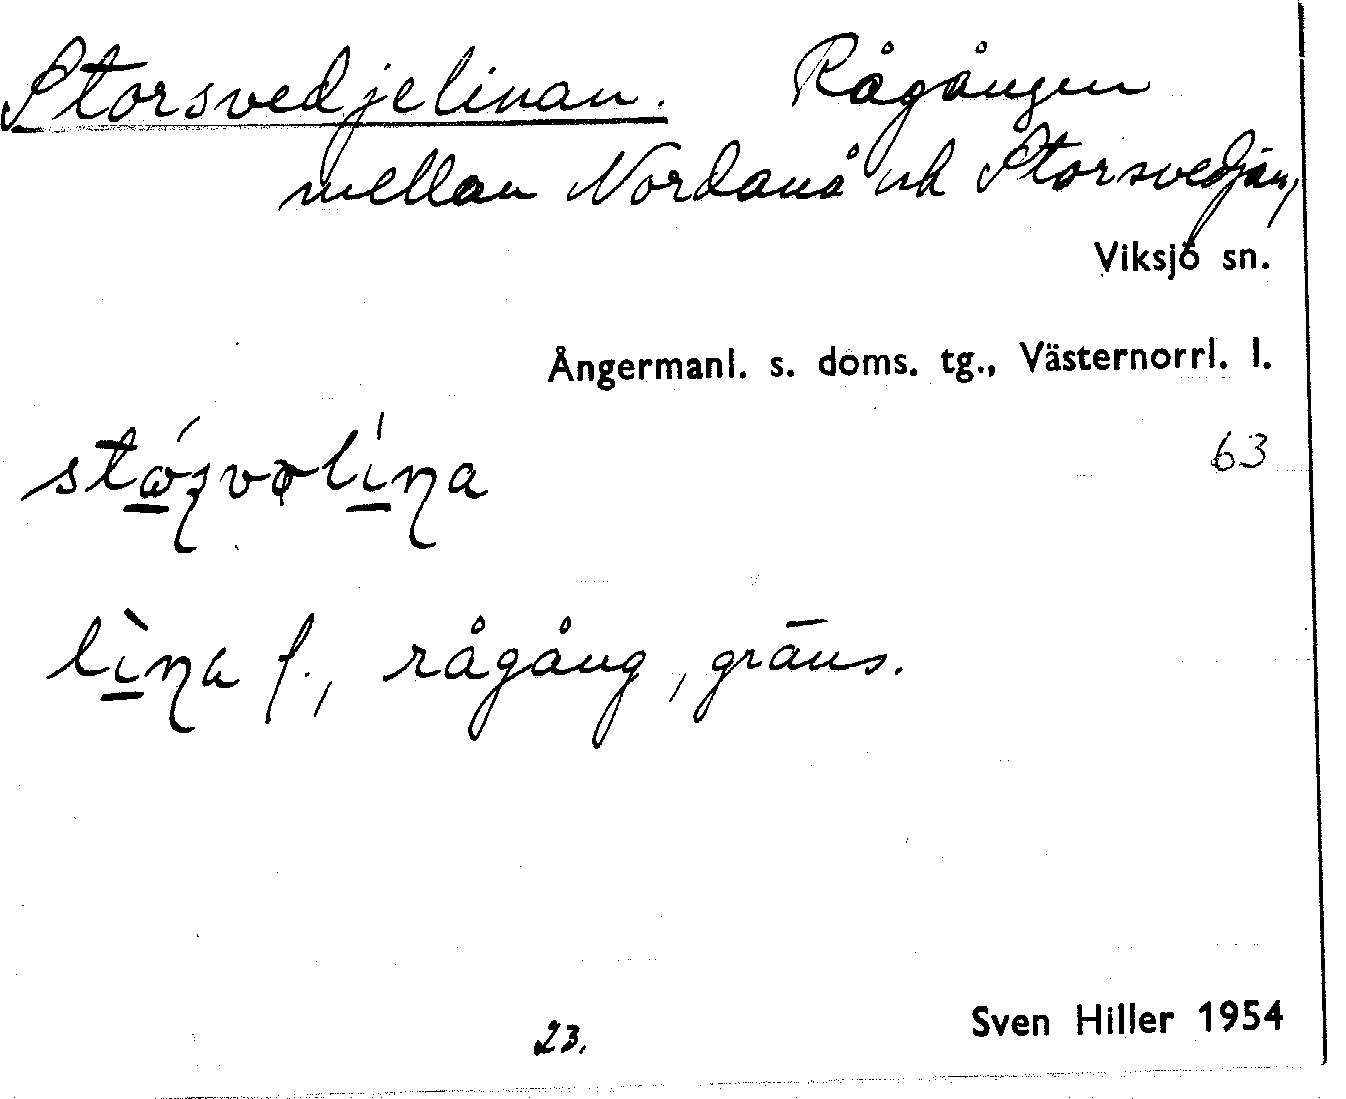 Storsvedjelinan. Rågången
mellan Nordanå och Storsvedjan,
Viksjö sn.
Ångermanl. s. doms. tg., Västernorrl. l.
63
lìna f., rågång, gräns.
Sven Hiller 1954
23.